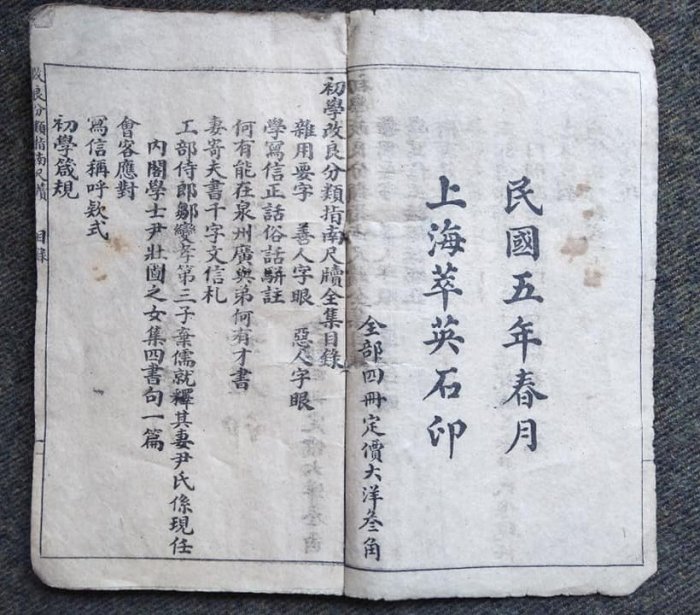 民國五年春月
上海萃英石印
全部四冊定價大洋叁角
初學改良分類指南尺牘全集目錄
雜用要字　善人字眼　惡人字眼
學寫信正話俗話駢註
何有能在泉州廣與弟何有才書
妻寄夫書千字文信札
工部侍郎鄒孿孝第三子棄儒就釋其妻尹氏係現任
內閣學士尹壯圖之女集四書句一篇
會客應對
寫信稱呼欵式
初學箴規
改良分類指南尺牘　目錄　一